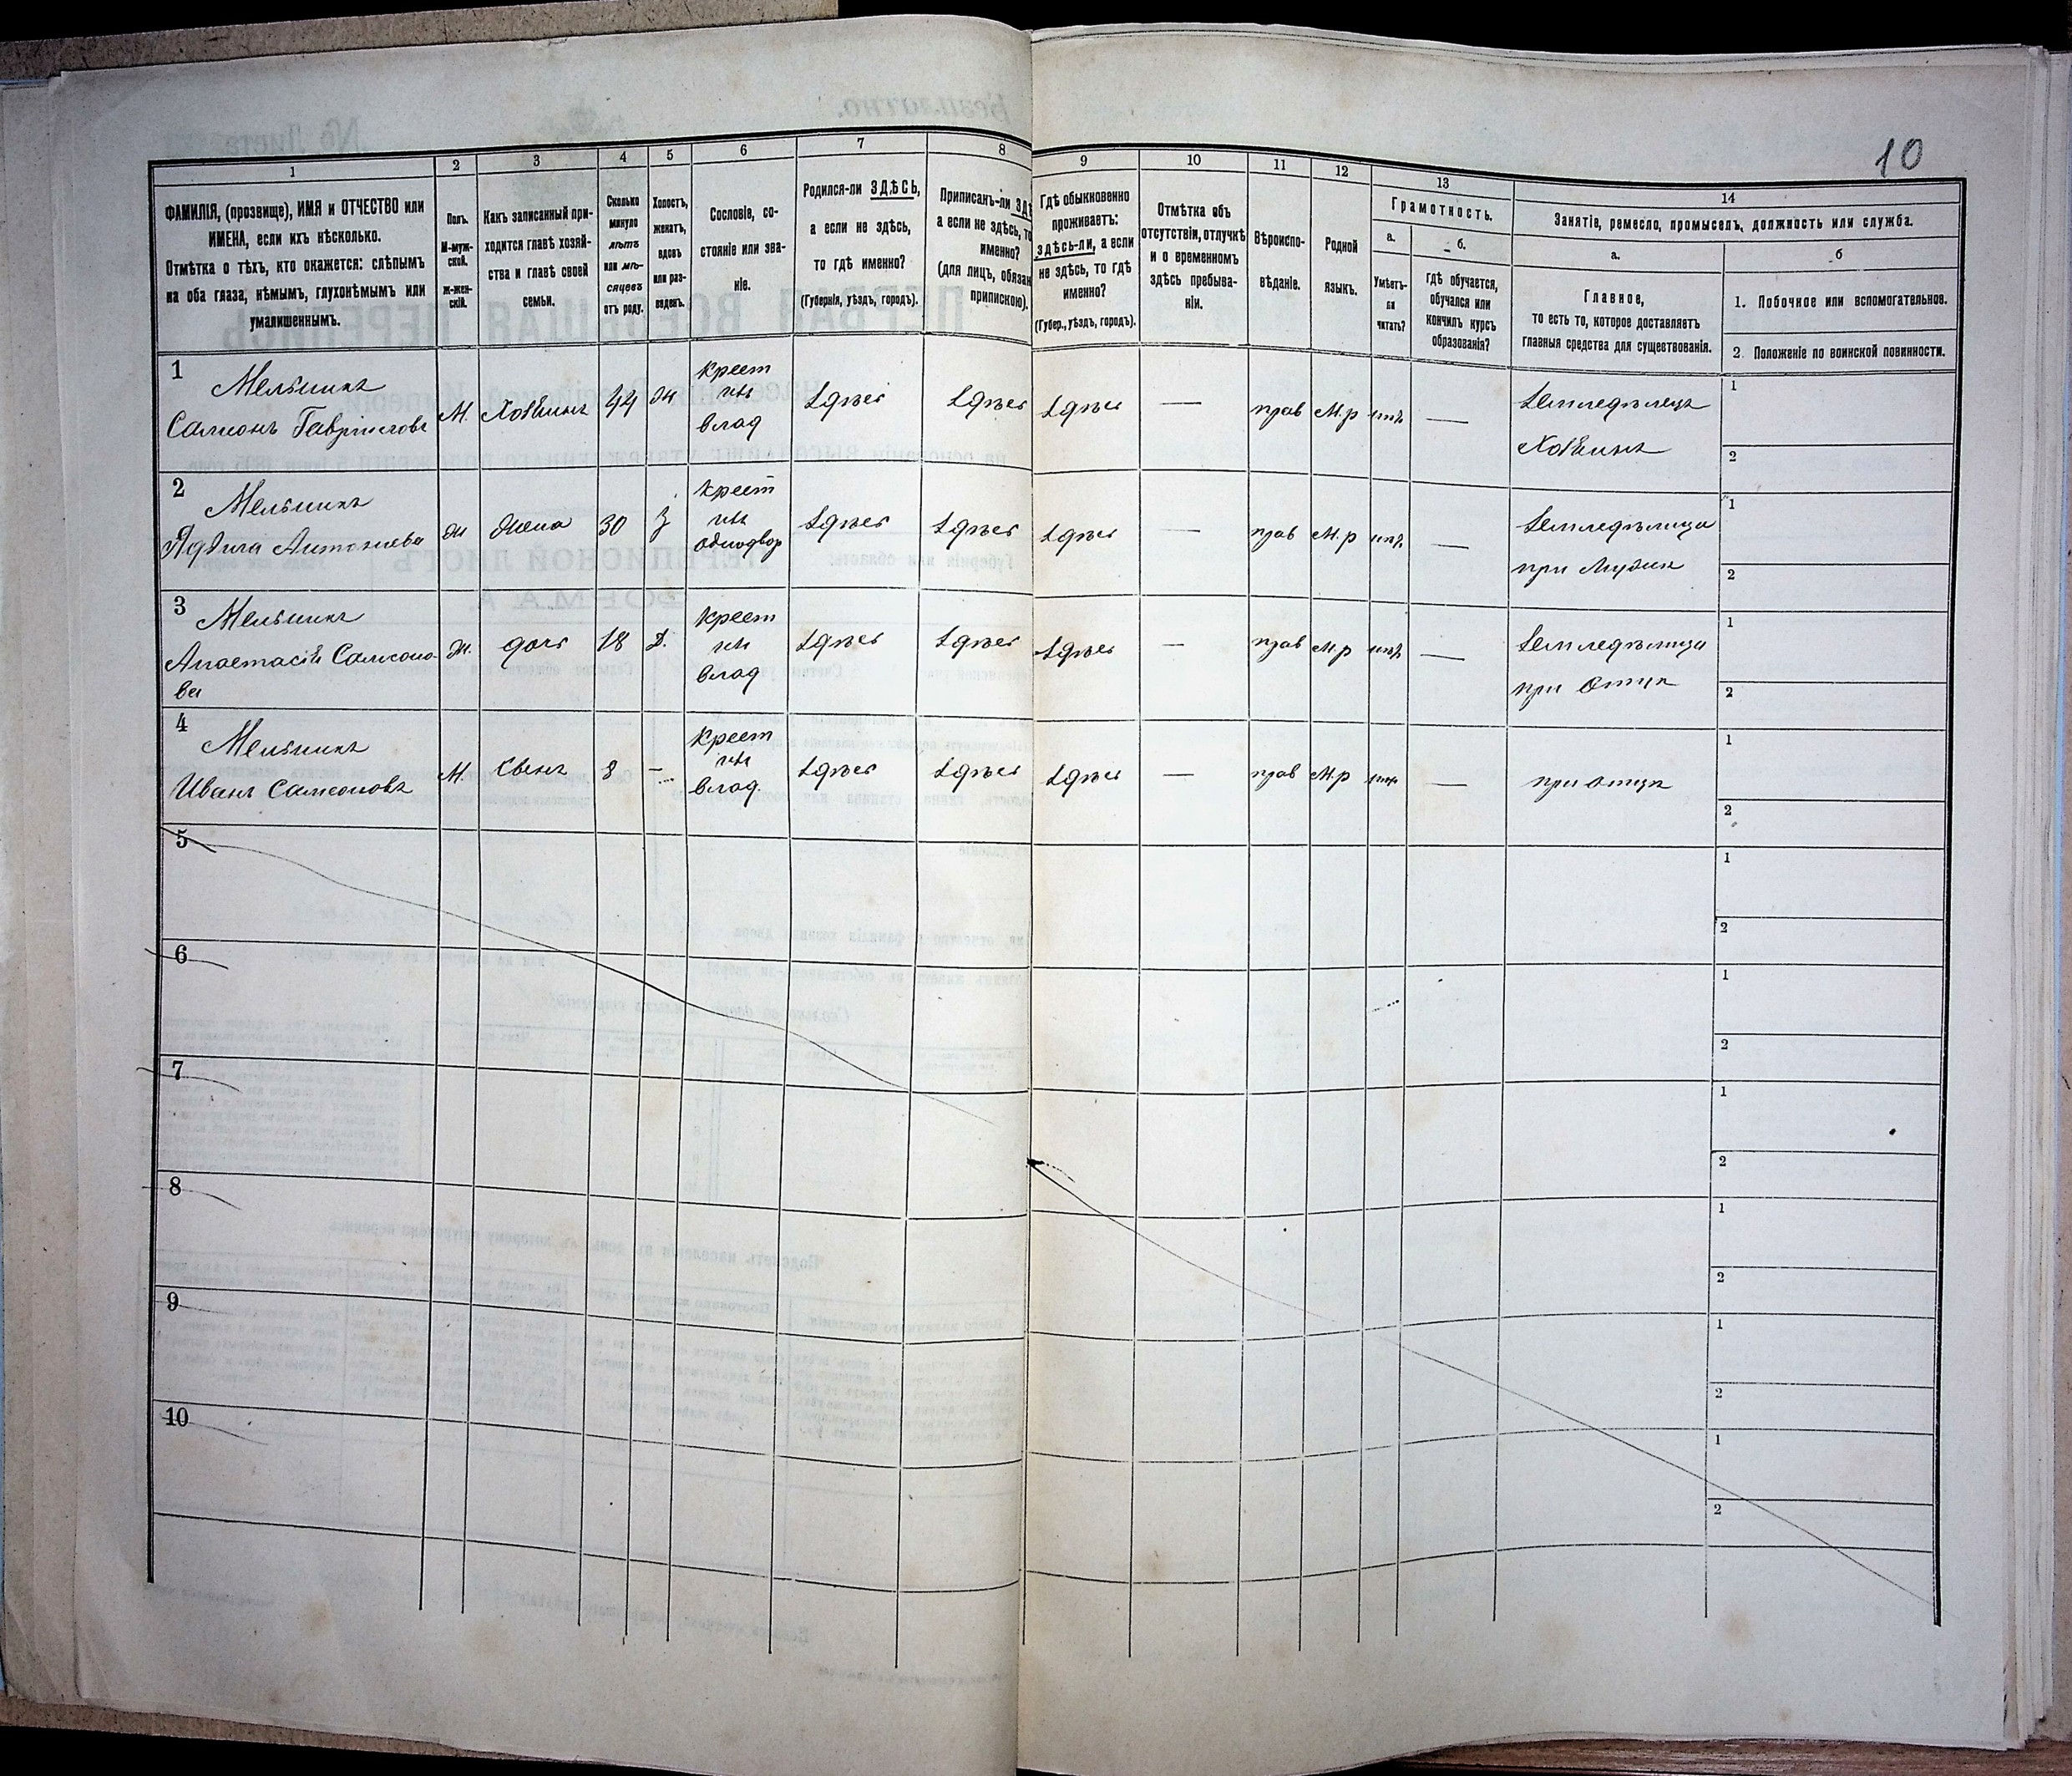 10
1
2
3
4
5
6
7
8
9
10
11
12
13
14
ФАМИЛІЯ, (прозвище), ИМЯ и ОТЧЕСТВО или
ИМЕНА, если ихъ нѣсколько.
Отмѣтка о тѣхъ, кто окажется: слѣпымъ
на оба глаза, нѣмымъ, глухонѣмымъ или
умалишеннымъ.
Полъ.
М-муж-
ской.
Ж-жен-
скій.
Какъ записанный при-
ходится главѣ хозяй-
ства и главѣ своей
семьи.
Сколько
минуло
лѣтъ
или мѣ-
сяцевъ
отъ роду.
Холостъ,
женатъ,
вдовъ
или раз-
веденъ.
Сословіе, со-
стояніе или зва-
ніе.
Родился-ли ЗДѢСЬ,
а если не здѣсь,
то гдѣ именно?
(Губернія, уѣздъ, городъ).
Приписанъ-ли ЗДѢ
а если не здѣсь, то
именно?
(для лицъ, обязан
припискою).
Гдѣ обыкновенно
проживаетъ:
здѣсь-ли, а если
не здѣсь, то гдѣ
именно?
(Губер., уѣздъ, городъ).
Отмѣтка объ
отсутствіи, отлучкѣ
и о временномъ
здѣсь пребыва-
ніи.
Вѣроиспо-
вѣданіе.
Родной
языкъ.
Грамотность.
а.
Умѣетъ-
ли
читать?
б.
гдѣ обучается,
обучался или
кончилъ курсъ
образованія?
Занятіе, ремесло, промыселъ, должность или служба.
а.
Главное,
то есть то, которое доставляетъ
главныя средства для существованія.
б
1. Побочное или вспомогательное.
2 Положеніе по воинской повинности.
1
Мельникъ
Самсонъ Гавриловъ
М.
Хозяинъ
44
ж
крест
изъ
влад
здѣсь
здѣсь
здѣсь
—
прав
М.р
—
земледѣлецъ
Хозяинъ
1
2
2
Мельникъ
Ядвига Антонова
ж
жена
30
З
крест
изъ
однодвор
здѣсь
здѣсь
здѣсь
—
прав
М.р
—
земледѣлица
при Мужи
1
2
3
Мельникъ
Анастасія Самсоно-
ва
ж.
дочь
18
Д.
крест
изъ
влад
здѣсь
здѣсь
здѣсь
—
прав
М.р
—
земледѣлица
при Отцѣ
1
2
4
Мельникъ
Иванъ Самсоновъ
М.
сынъ
8
—
крест
изъ
влад.
здѣсь
здѣсь
здѣсь
—
прав
М.р
—
при отцѣ
1
2
5
1
2
6
1
2
7
1
2
8
1
2
9
1
2
10
1
2